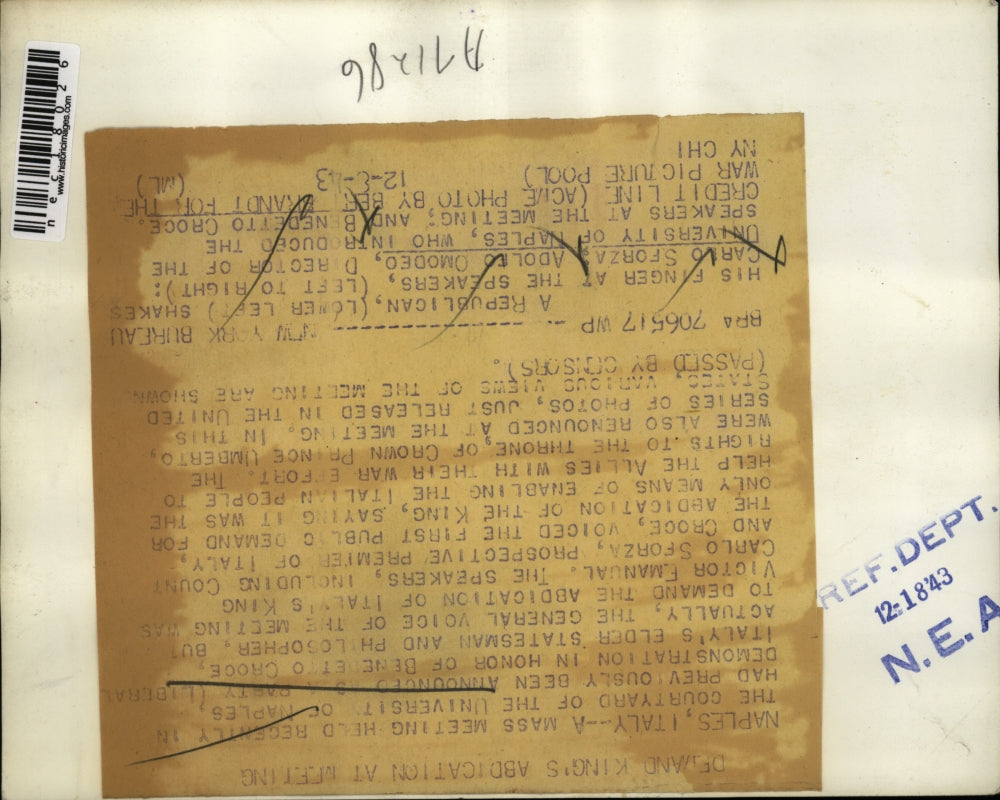 DEMAND KING'S ABDICATION AT MEETING
NAPLES, ITALY--A MASS MEETING HELD RECENTLY IN
THE COURTYARD OF THE UNIVERSITY OF NAPLES,
HAD PREVIOUSLY BEEN ANNOUNCED AS A PARTY (LIBERAL
DEMONSTRATION IN HONOR OF BENEDETTO CROCE,
ITALY'S ELDER STATESMAN AND PHILOSOPHER, BUT
ACTUALLY, THE GENERAL VOICE OF THE MEETING WAS
TO DEMAND THE ABDICATION OF ITALY'S KING
VICTOR EMANUAL. THE SPEAKERS, INCLUDING COUNT
CARLO SFORZA, PROSPECTIVE PREMIER OF ITALY,
AND CROCE, VOICED THE FIRST PUBLIC DEMAND FOR
THE ABDICATION OF THE KING, SAYING IT WAS THE
ONLY MEANS OF ENABLING THE ITALIAN PEOPLE TO
HELP THE ALLIES WITH THEIR WAR EFFORT. THE
RIGHTS TO THE THRONE, OF CROWN PRINCE UMBERTO,
WERE ALSO RENOUNCED AT THE MEETING. IN THIS
SERIES OF PHOTOS, JUST RELEASED IN THE UNITED
STATES, VARIOUS VIEWS OF THE MEETING ARE SHOWN
(PASSED BY CENSORS).
BPA 706517 WP -------------------- NEW YORK BUREAU
A REPUBLICAN, (LOWER LEFT) SHAKES
HIS FINGER AT THE SPEAKERS, (LEFT TO RIGHT):
CARLO SFORZA; ADOLFO OMODEO, DIRECTOR OF THE
UNIVERSITY OF NAPLES, WHO INTRODUCED THE
SPEAKERS AT THE MEETING; AND BENEDETTO CROCE.
CREDIT LINE (ACME PHOTO BY BERT BRANDT FOR THE
WAR PICTURE POOL) 12-8-43 (ML)
NY CHI
REF. DEPT.
12-18'43
N. E. A
nec18026
www.historicimages.com